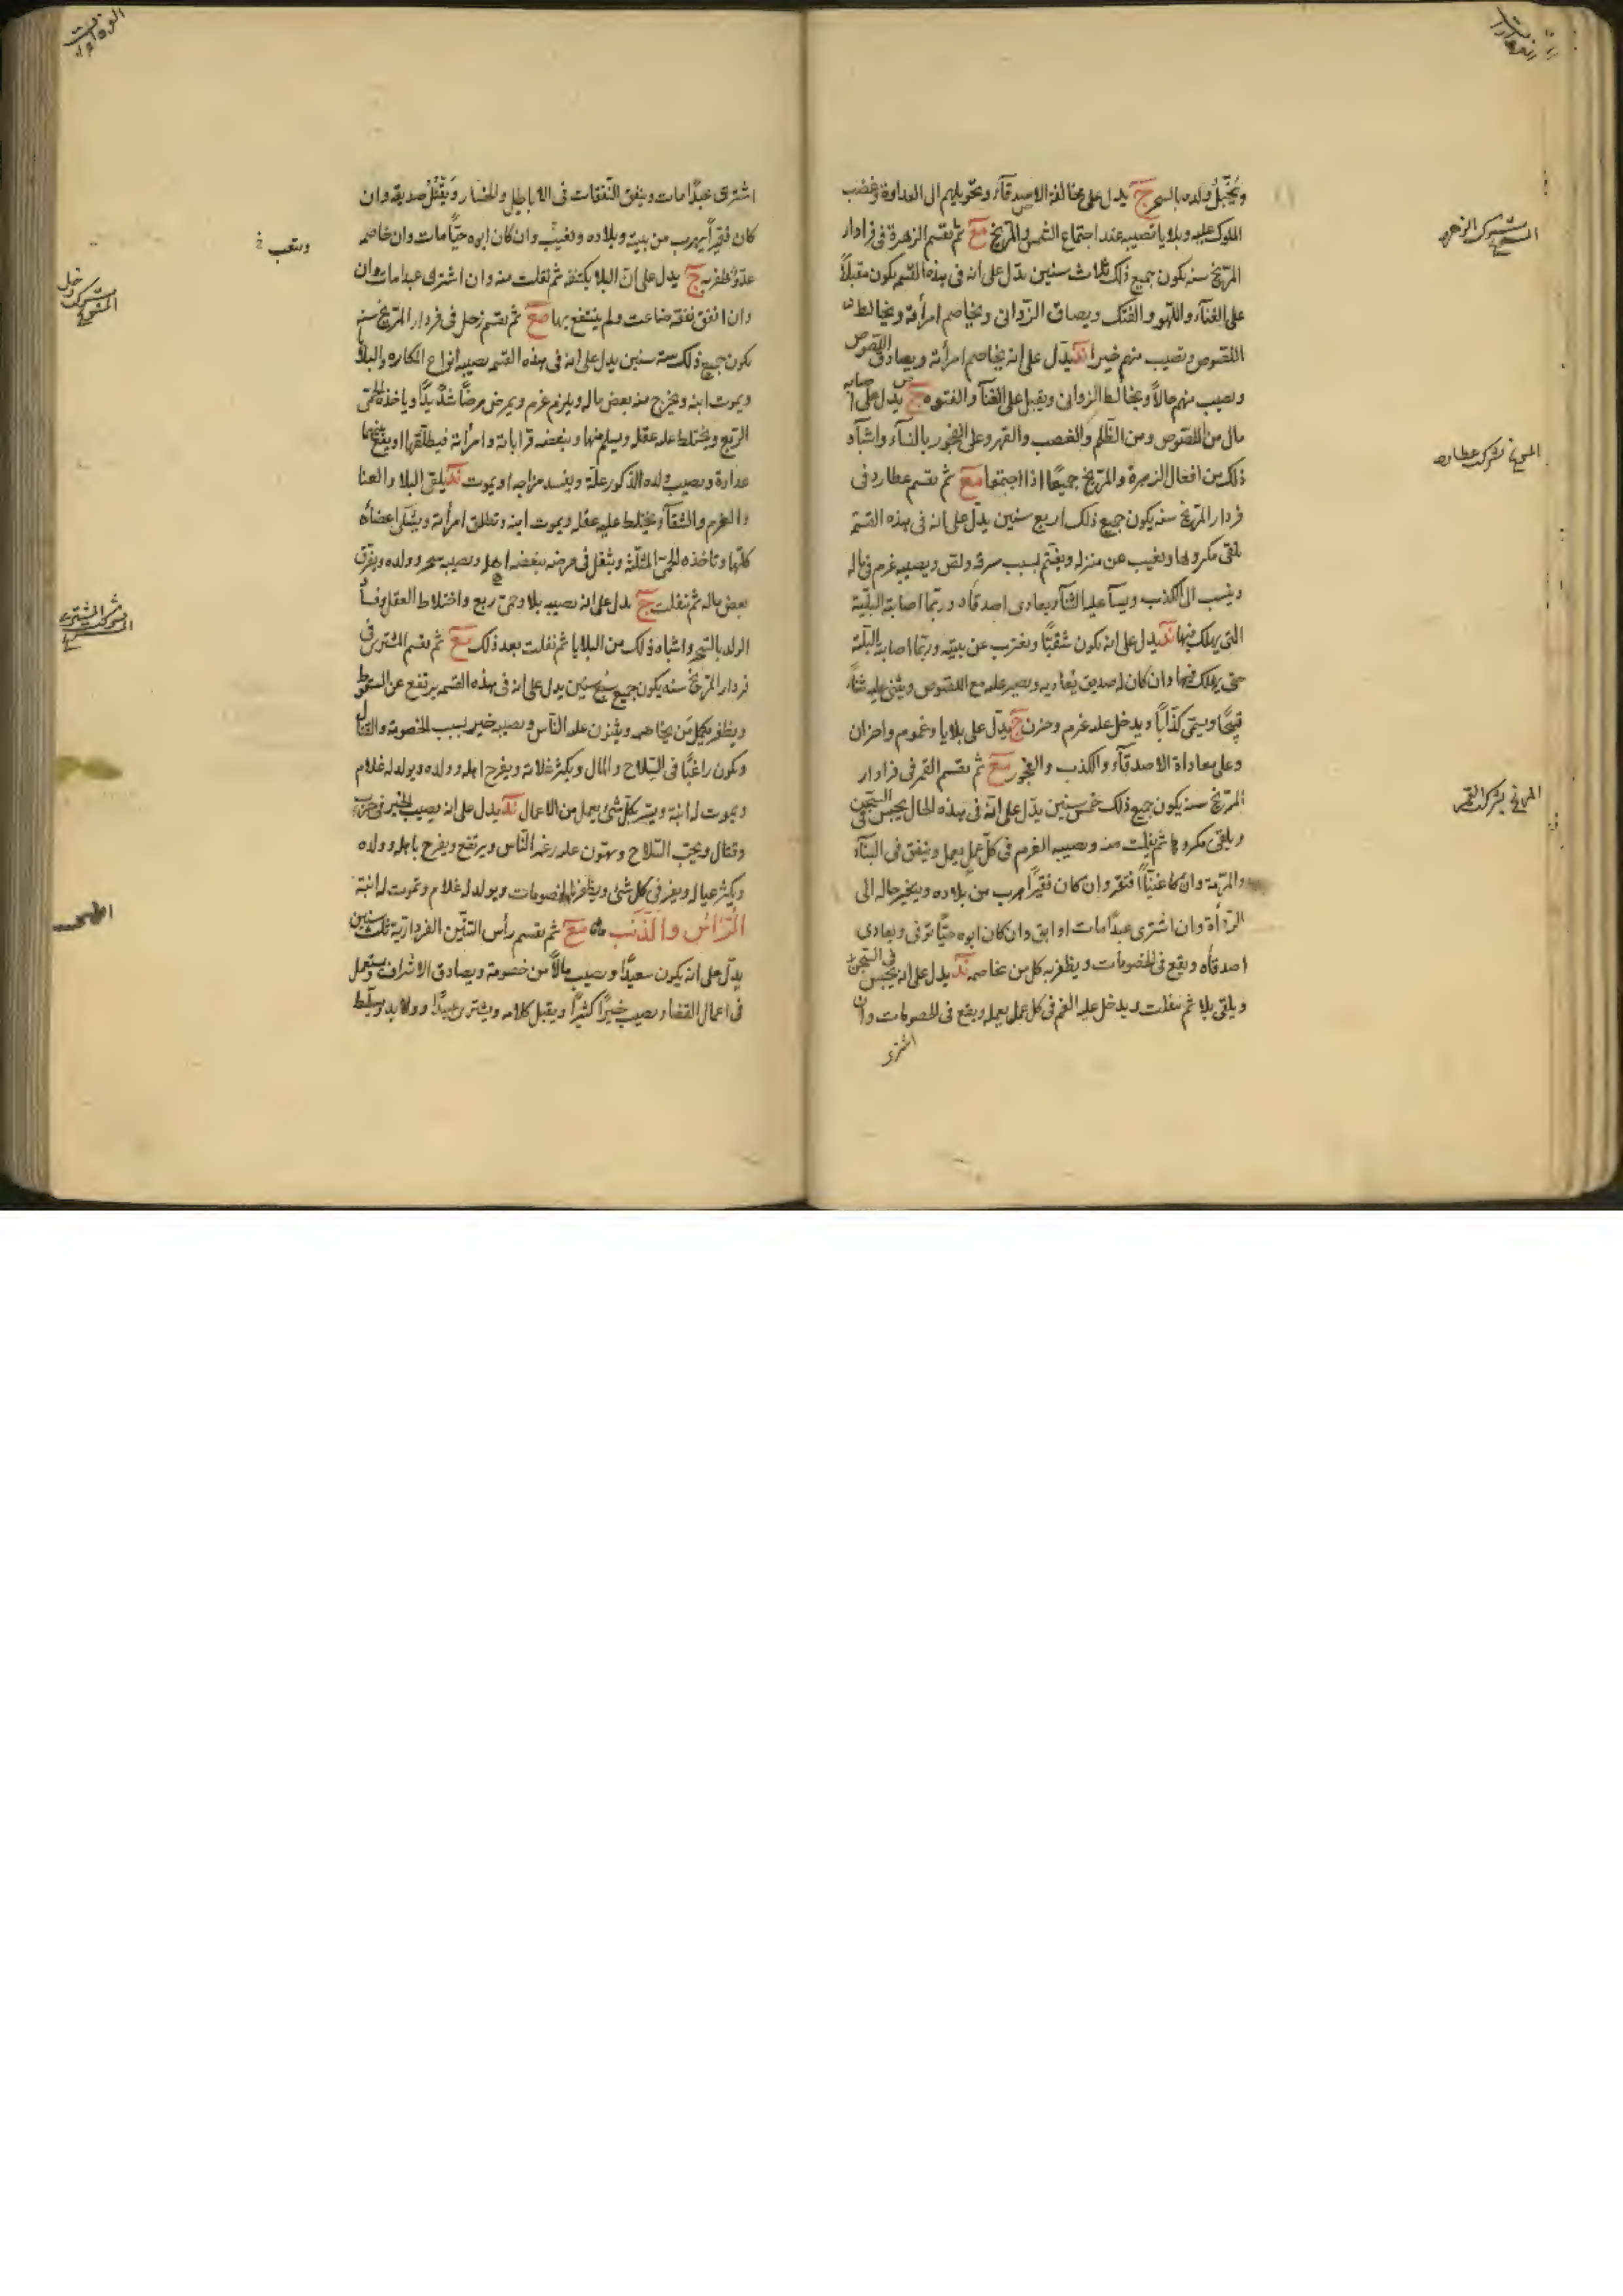 ويُخبّل ولده بالسحر ج يدل على مخالفة الاصدقآء وتحويلهم الى العداوة وغضب
الملوك عليه وبلايا تصيبه عند اجتماع الشمس والمريخ مع ثم تقسم الزهرة فى فرادار
المريخ سنه يكون جميع ذلك ثلاث سنين يدّل على انه فى هذه القسم يكون مقبلاً
على الغنآء واللهو والفتك ويصادق الزوانى ويخاصم امرأته ويخالط
اللصوص ويصيب منهم خيرا ند يدّل على انه يخاصم امرأته ويصادق اللصوص
ويصيب منهم مالاً ويخالط الزوانى ويقبل على الغنآ والفتوه ج يدل على اصابه
مال من اللصوص ومن الظلم والغصب والقهر وعلى الفجور بالنسآء واشباه
ذلك من افعال الزهرة والمريخ جميعًا اذا اجتمعا مع ثم تقسم عطارد فى
فردار المريخ سنه يكون جميع ذلك اربع سنين يدّل على انه فى هذه القسم
يلقى مكروها ويغيب عن منزله ويغتم بسبب سرقه ولص ويصيبه غرم فى ماله
وينسب الى الكذب ويسآء عليه الثنآء ويعادى اصدقاه وربّما اصابه البليّة
التى يهلك فيها ند يدل على انه يكون شقيّا ويغترب عن بيته وربّما اصابه البليّة
حتى يهلك فيها وان كان له صديق يعاديه ويصير عليه مع اللصوص ويثنى عليه ثنآء
قبيحًا ويسمّى كذّابًا ويدخل عليه غرم وحزن ج يدّل على بلايا وغموم واحزان
وعلى معاداة الاصدقآء والكذب والفجور مع ثم تقسم القمر فى فرادار
المريخ سنه يكون جميع ذلك خمس سنين يدّل على انّه فى هذه الحال يحبس فى السّجن
ويلقى مكروها ثم يفلت منه ويصيبه الغرم فى كل عمل يعمل وينفق فى البنآء
والمرمة وان كان غنيّا افتقر وان كان فقيرًا هرب من بلاده ويتغير حاله الى
الردأة وان اشترى عبدًا مات او ابق وان كان ابوه حيّا توفى ويعادى
اصدقآه ويقع فى الخصومات ويظفر به كل من يخاصمه ند يدل على انه يحبس فى السّجن
ويلقى بلا ثم يفلت ويدخل عليه الغم فى كل عمل يعمله ويقع فى الخصومات وان
اشترى
المريخ بشركت الزهره
المريخ بشركت عطارد
المريخ بشركت القمر
اشترى عبدًا مات وينفق النّفقات فى الاباطيل والخسار ويُقْتَلُ صديقه وان
كان فقيرًا يهرب من بيته وبلاده ويغيب وان كان ابوه حيّا مات وان خاصمه
عدوّ ظفر به ج يدل على انّ البلا يكتنفه ثم يفلت منه وان اشترى عبدا مات وان
وان انفق نفقه ضاعت ولم ينتفع بها مع ثم تقسم زحل فى فردار المريخ سنه
يكون جميع ذلك سته سنين يدل على انه فى هذه القسم يصيبه انواع المكاره والبلا
ويموت ابنه ويخرج منه بعض ماله ويلزم غرم ويمرض مرضًا شديدًا وياخذه الحمّى
الربع ويختلط عليه عقله ويسلم منها ويبغضه قراباته وامرأته فيطلّقها او يقع بينهما
عداوة ويصيب ولده الذكور علّة ويفسد مزاجه او يموت ند يلقى البلا والعنا
والغرم والشقآء ويختلط عليه عقله ويموت ابنه وتطلق امرأته ويشتكى اعضائه
كلّها وتاخذه الحمّى المثلّثة ويثقل فى مرضه يبغضه اهله ويصيبه سحر وولده ويفرق
بعض ماله ثم يفلت ج يدل على انه يصيبه بلا وحمّى ربع واختلاط العقل وفسآد
الولد بالسّحر واشباه ذلك من البلايا ثم يفلت بعد ذلك مع ثم تقسم المشترى فى
فردار المريخ سنه يكون جميع سبع سنين يدل على انه فى هذه القسم يرتفع عن السقوط
ويظفر بكل من يخاصمه ويثنون عليه النّاس ويصيبه خير بسبب الخصومة والقتال
ويكون راغبًا فى السّلاح والمال ويكثر غلاته ويفرح اهله وولده ويولد له غلام
ويموت له ابنة ويتيسر بكلّ شئ يعمل من الاعمال ند يدل على انه يصيب الخير فى حرب
وقتال ويحبّ السّلاح ويهون عليه رغم النّاس ويرتفع ويفرح باهله وولده
ويكثر عياله ويعز فى كل شئ ويظفر بالخصومات ويولد له غلام وتموت له ابنة
الرّأس والذّنب مع ثم تقسم رأس التنّين الفرداريّة ثلث سنين
يدّل على انه يكون سعيدًا ويصيب مالاً من خصومة ويصادق الاشراف ويستعمل
فى اعمال القضاء ويصيب خيرًا كثيرًا ويقبل كلامه ويشترى عبيدًا وولايد ويسلّط
ويتعب
المريخ بشركت زحل
المريخ بشركت المشترى